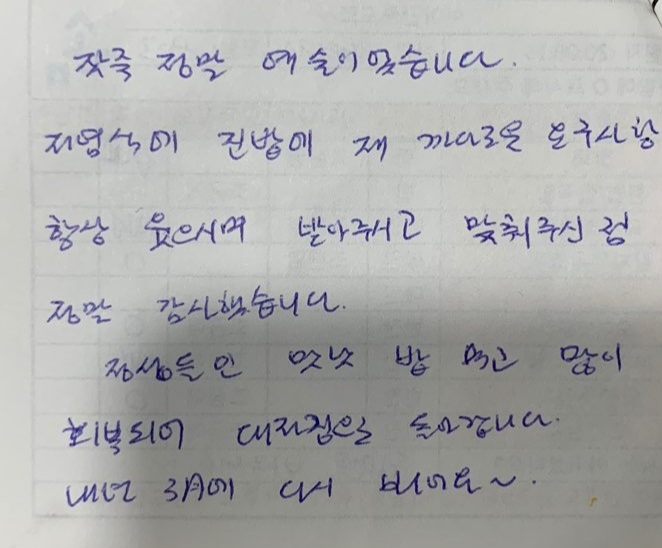 잣죽 정말 예술이였습니다.
저염식에 진밥에 제 까다로운 요구사항
항상 웃으시며 받아주시고 맞춰주신 점
정말 감사했습니다.
정성들인 맛난 밥 먹고 많이
회복되어 대자집으로 돌아갑니다.
내년 3A에 다시 봐어요~.